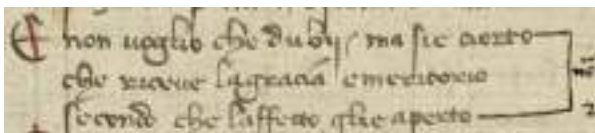 E non uoglio che dubij / ma sie certo
che riceue lagracia e meritorio
secondo che laffetto glie aperto